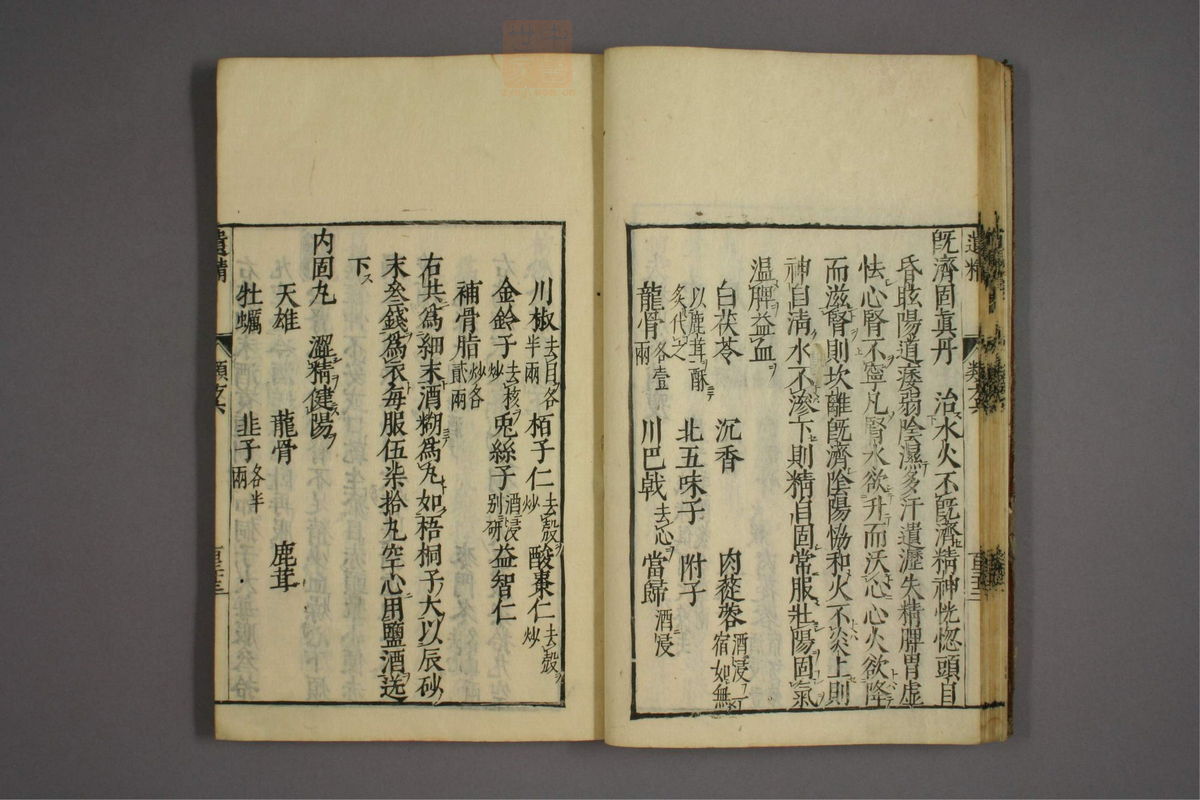 遺精
類六
既濟固眞丹 治水火不既濟精神恍惚頭目
昏眩陽道痿弱陰濕多汗遺瀝失精脾胃虚
怯心腎不寧凡腎水欲升而沃心心火欲降
而滋腎則坎離既濟陰陽恊和火不炎上則
神自清水不滲下則精自固常服壯陽固氣
温脾益血
白茯苓 沉香 肉蓯蓉酒浸一宿如無
以鹿茸酥炙代之 北五味子 附子
龍骨各壹兩 川巴戟去心 當歸酒浸
川椒去目各半兩 栢子仁去殼炒 酸棗仁去殼炒
金鈴子去核炒 兎絲子酒浸别研 益智仁
補骨脂炒各貳兩
右共爲細末酒糊爲丸如梧桐子大以辰砂
末叄錢爲衣毎服伍柒拾丸空心用鹽酒送
下
内固丸 澀精健陽
天雄 龍骨 鹿茸
牡蠣 韭子各半兩
遺精
類六